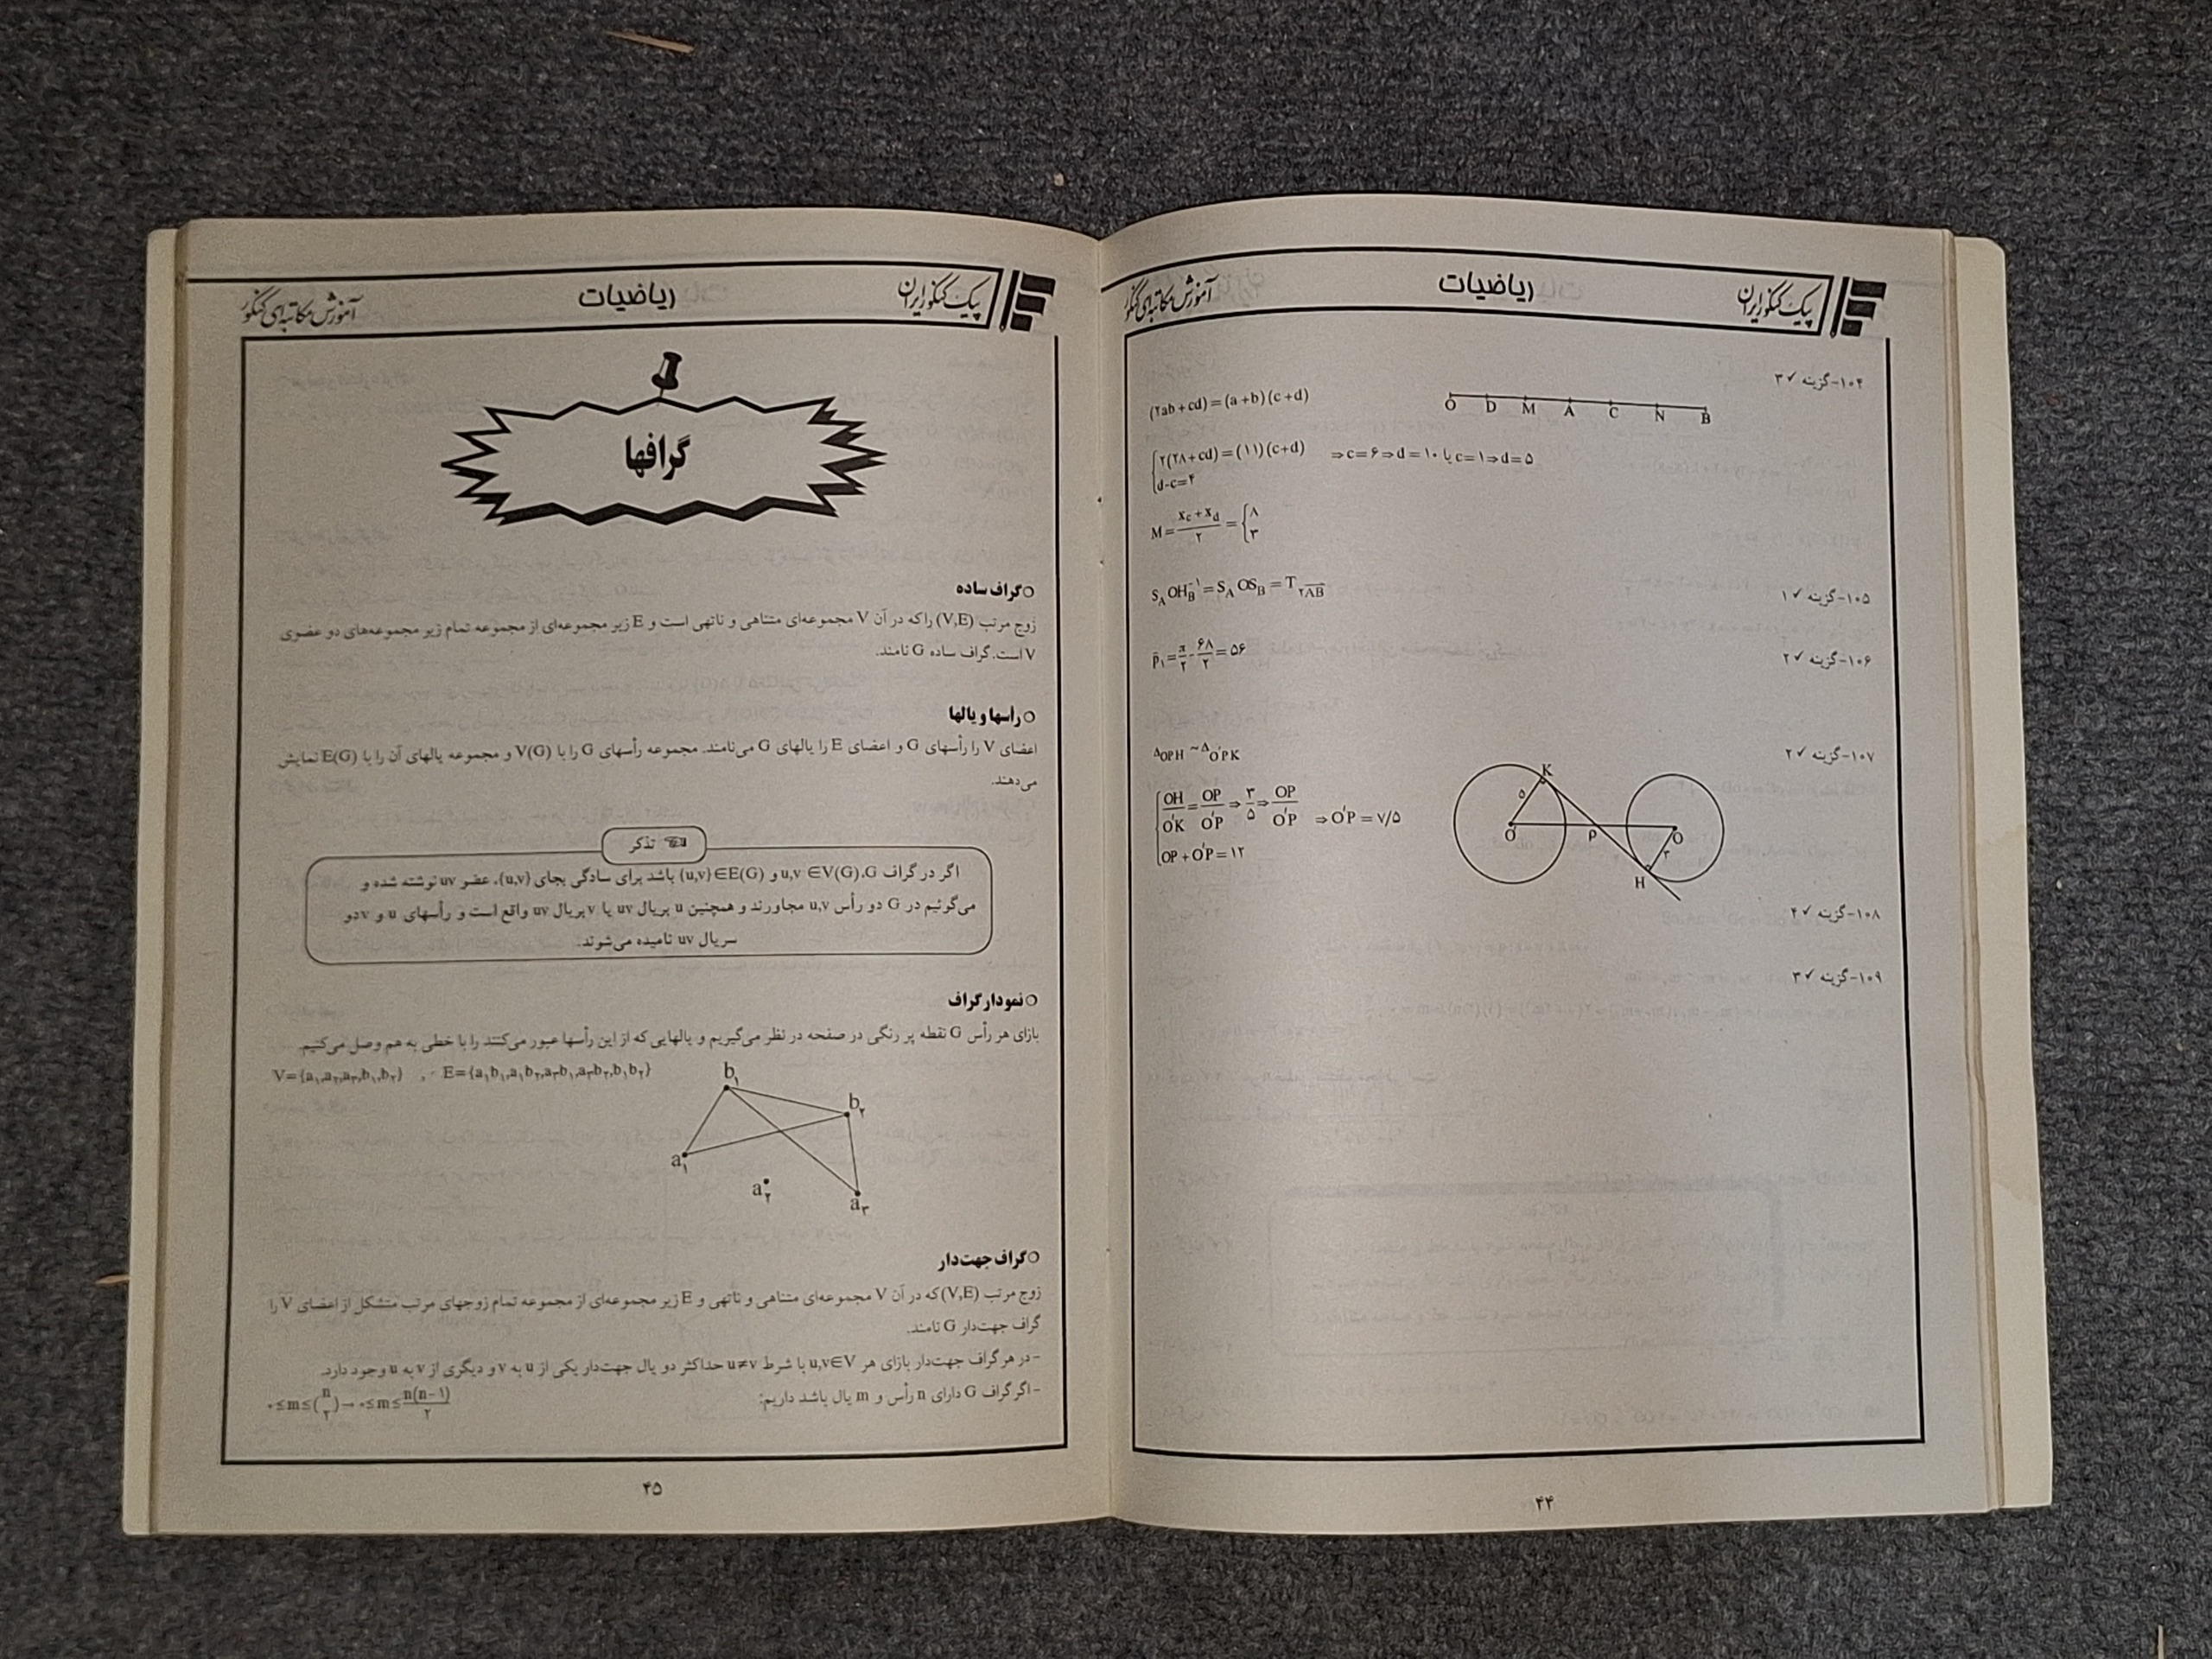 پیک کنکور ایران
ریاضیات
آموزش مکاتبه‌ای کنکور
۱۰۴-گزینه ✓ ۳
O D M A C N B
(۲ab+cd)=(a+b)(c+d)
۲(۲۸+cd)=(۱۱)(c+d) ⇒c=۶⇒d=۱۰ یا c=۱⇒d=۵
d-c=۴
M=(x_c+x_d)/۲={۸ ۳
۱۰۵-گزینه ✓ ۱
S_A OH_B^-۱=S_A OS_B=T_۲AB
۱۰۶-گزینه ✓ ۲
p̂۱=π/۲-۶۸/۲=۵۶
۱۰۷-گزینه ✓ ۲
Δ OPH ~ Δ O'PK
OH/O'K=OP/O'P⇒۳/۵⇒OP/O'P ⇒O'P=۷/۵
OP+O'P=۱۲
K ۵ O' P O ۳ H
۱۰۸-گزینه ✓ ۴
۱۰۹-گزینه ✓ ۳
۴۴
پیک کنکور ایران
ریاضیات
آموزش مکاتبه‌ای کنکور
گرافها
○گراف ساده
زوج مرتب (V,E) را که در آن V مجموعه‌ای متناهی و ناتهی است و E زیر مجموعه‌ای از مجموعه تمام زیر مجموعه‌های دو عضوی
V است. گراف ساده G نامند.
○رأسها و یالها
اعضای V را رأسهای G و اعضای E را یالهای G می‌نامند. مجموعه رأسهای G را با V(G) و مجموعه یالهای آن را با E(G) نمایش
می‌دهند.
تذکر
اگر در گراف G، u,v∈V(G) و {u,v}∈E(G) باشد برای سادگی بجای {u,v}، عضو uv نوشته شده و
می‌گوئیم در G دو رأس u,v مجاورند و همچنین u بریال uv یا v بریال uv واقع است و رأسهای u و v دو
سریال uv نامیده می‌شوند.
○نمودار گراف
بازای هر رأس G نقطه پر رنگی در صفحه در نظر می‌گیریم و یالهایی که از این رأسها عبور می‌کنند را با خطی به هم وصل می‌کنیم.
V={a۱,a۲,a۳,b۱,b۲} , E={a۱b۱,a۱b۲,a۳b۱,a۳b۲,b۱b۲}
b۱
b۲
a۱
a۲
a۳
○گراف جهت‌دار
زوج مرتب (V,E) که در آن V مجموعه‌ای متناهی و ناتهی و E زیر مجموعه‌ای از مجموعه تمام زوجهای مرتب متشکل از اعضای V را
گراف جهت‌دار G نامند.
-در هر گراف جهت‌دار بازای هر u,v∈V با شرط u≠v حداکثر دو یال جهت‌دار یکی از u به v و دیگری از v به u وجود دارد.
-اگر گراف G دارای n رأس و m یال باشد داریم: ۰≤m≤(n ۲)→۰≤m≤n(n-۱)/۲
۴۵